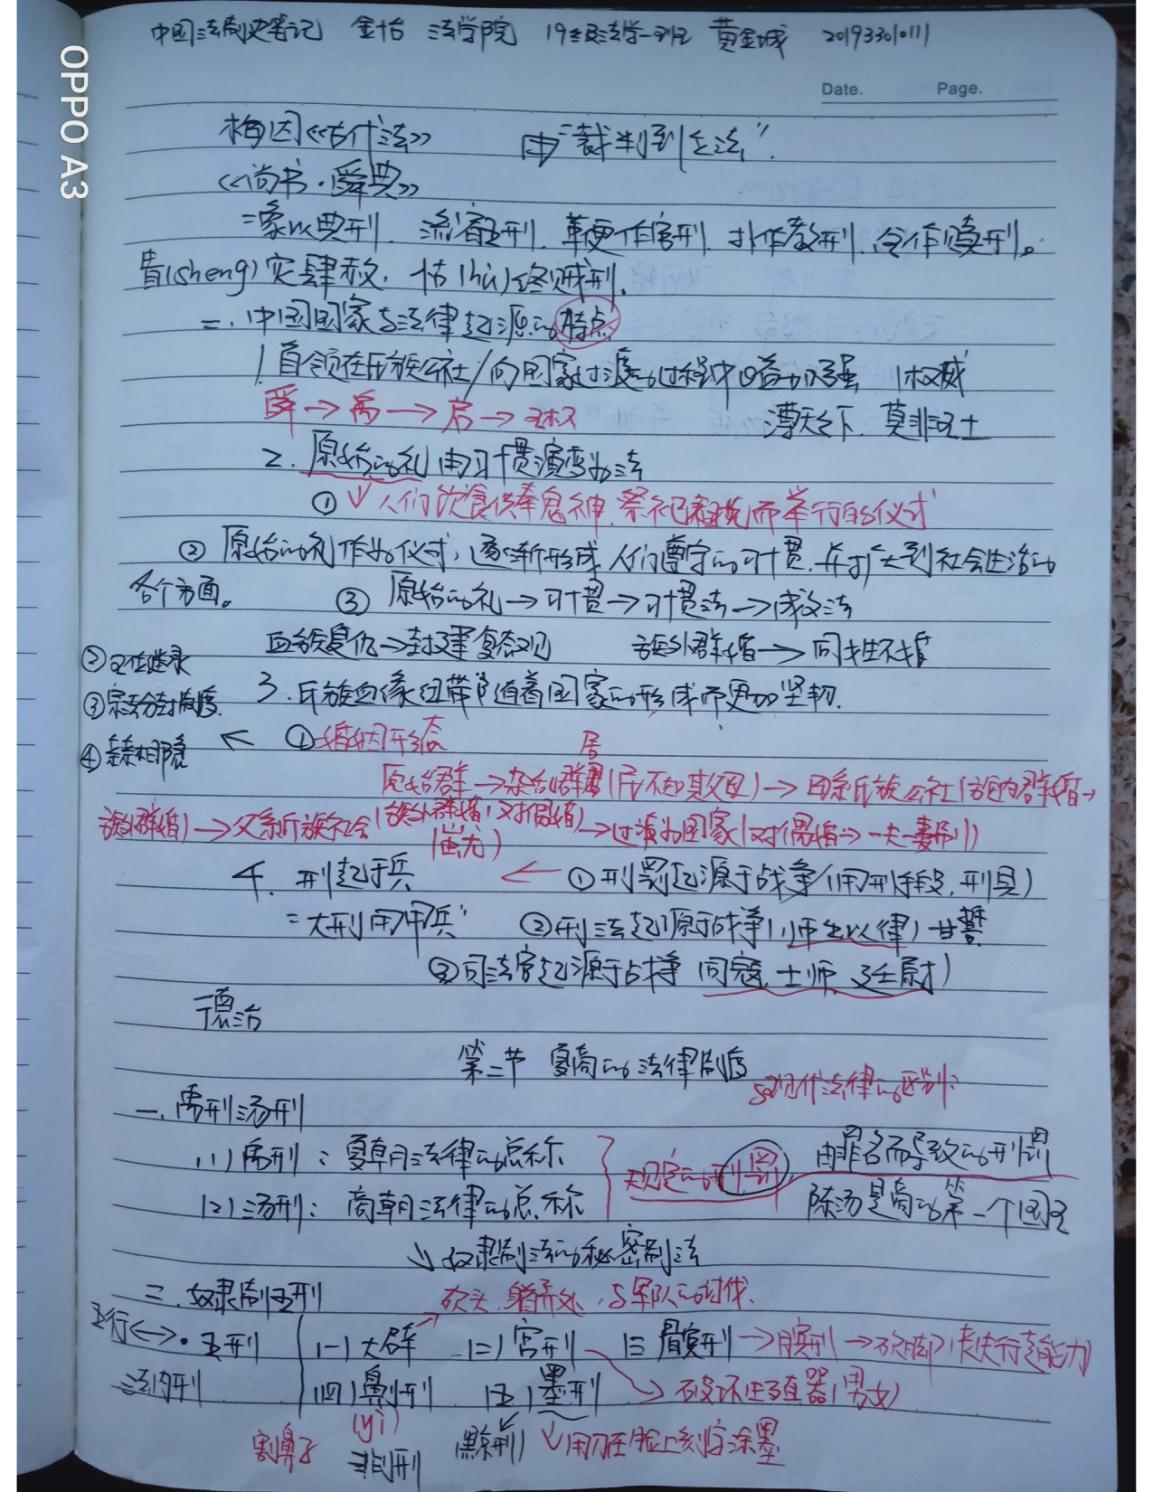 中国法制史笔记 金怡 法学院 19级法学一班 黄金城 201933010111
OPPO A3
Date. Page.
梅因《古代法》 由"裁判到立法"
《尚书·舜典》
"象以典刑、流宥五刑、鞭作官刑、扑作教刑、金作赎刑。
眚(sheng)灾肆赦,怙(hù)终贼刑。
二、中国国家与法律起源的特点
1. 首领在氏族公社/向国家过渡的过程中日益加强 权威
舜→禹→启→王权
溥天之下,莫非王土
2. 原始的礼由习惯演变为法
① ↓人们饮食供奉鬼神,祭祀祖先而举行的仪式
② 原始的礼作为仪式,逐渐形成人们遵守的习惯,并扩大到社会生活的
各个方面。 ③ 原始的礼→习惯→习惯法→成文法
血族复仇→封建复仇观 族外群婚→同姓不婚
②王位继承
3. 氏族血缘纽带随着国家的形成而更加坚韧.
③宗法分封制度
④亲亲相隐 ← ①婚姻形态
原始群→杂乱群居(民不知其父母)→母系氏族公社(族内群婚→
族外群婚)→父系氏族社会(族外群婚,对偶婚)→过渡为国家(对偶婚→一夫一妻制)
(蚩尤)
4. 刑起于兵 ← ①刑罚起源于战争(用刑手段,刑具)
"大刑用甲兵" ②刑法起源于战争(师出以律)甘誓
③司法官起源于战争 司寇、士师、廷尉)
德治
第二节 夏商的法律制度
与现代法律的区别:
一、禹刑汤刑
(1)禹刑:夏朝法律的总称
规定的刑罚 由罪名而导致的刑罚
(2)汤刑:商朝法律的总称
陈汤是商的第一个国王
↓奴隶制法的秘密制法
二、奴隶制五刑
砍头,与军队的讨伐.
五行↔·五刑 (一)大辟 (二)宫刑 (三)膑刑→刖刑→砍脚(失去行走能力)
(四)劓刑 (五)墨刑 →破坏生殖器(男女)
(yì)
割鼻子 黥刑 ↓用刀在脸上刻字涂墨